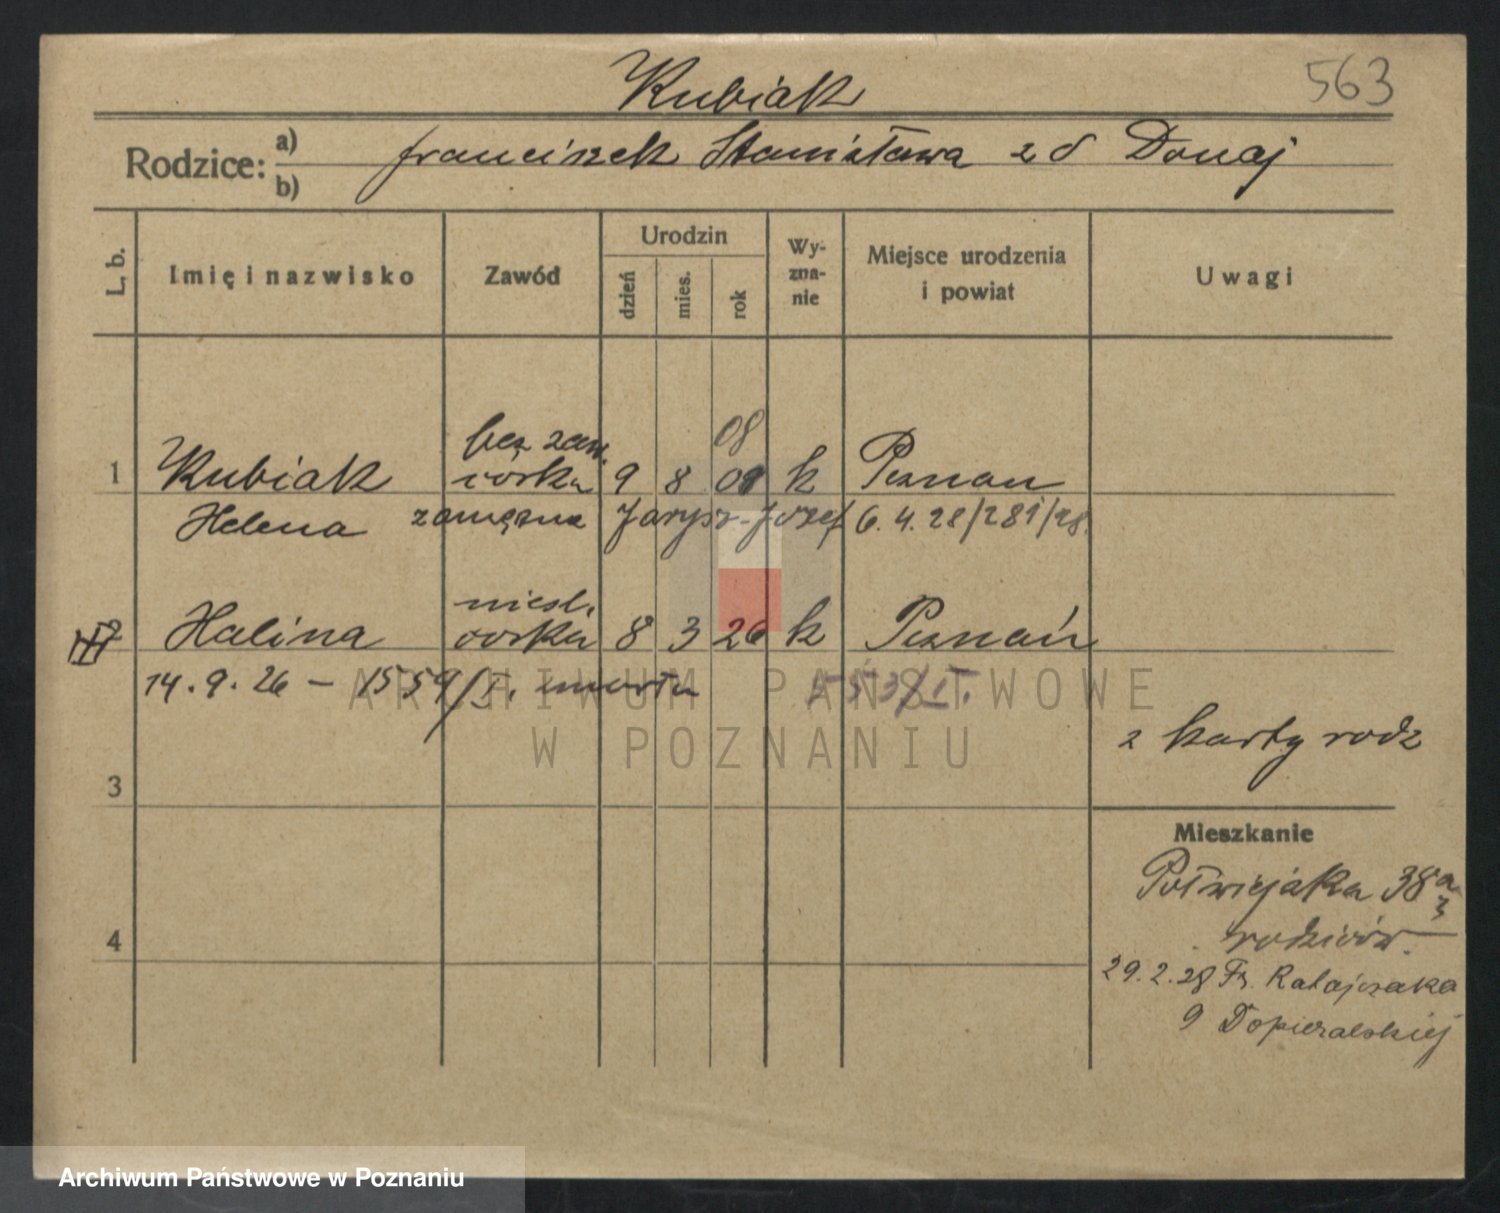 Kubiak
563
Rodzice: a) b)
Franciszek Stanisława z d Donaj
L. b.
Imię i nazwisko
Zawód
Urodzin
dzień
mies.
rok
Wy-
zna-
nie
Miejsce urodzenia
i powiat
Uwagi
bez zaw. 08
1 Kubiak córka 9 8 09 k Poznań
Helena zamężna Jarysz-Józef 6.4.28/281/28.
nieśl.
2 Halina córka 8 3 26 k Poznań
14.9.26 – 1559/I. umarła 553/II.
z karty rodz
3
Mieszkanie
Półwiejska 38a
3
rodziców.
4
29.2.28 Fr. Ratajczaka
9 Dopieralskiej
ARCHIWUM PAŃSTWOWE
W POZNANIU
Archiwum Państwowe w Poznaniu